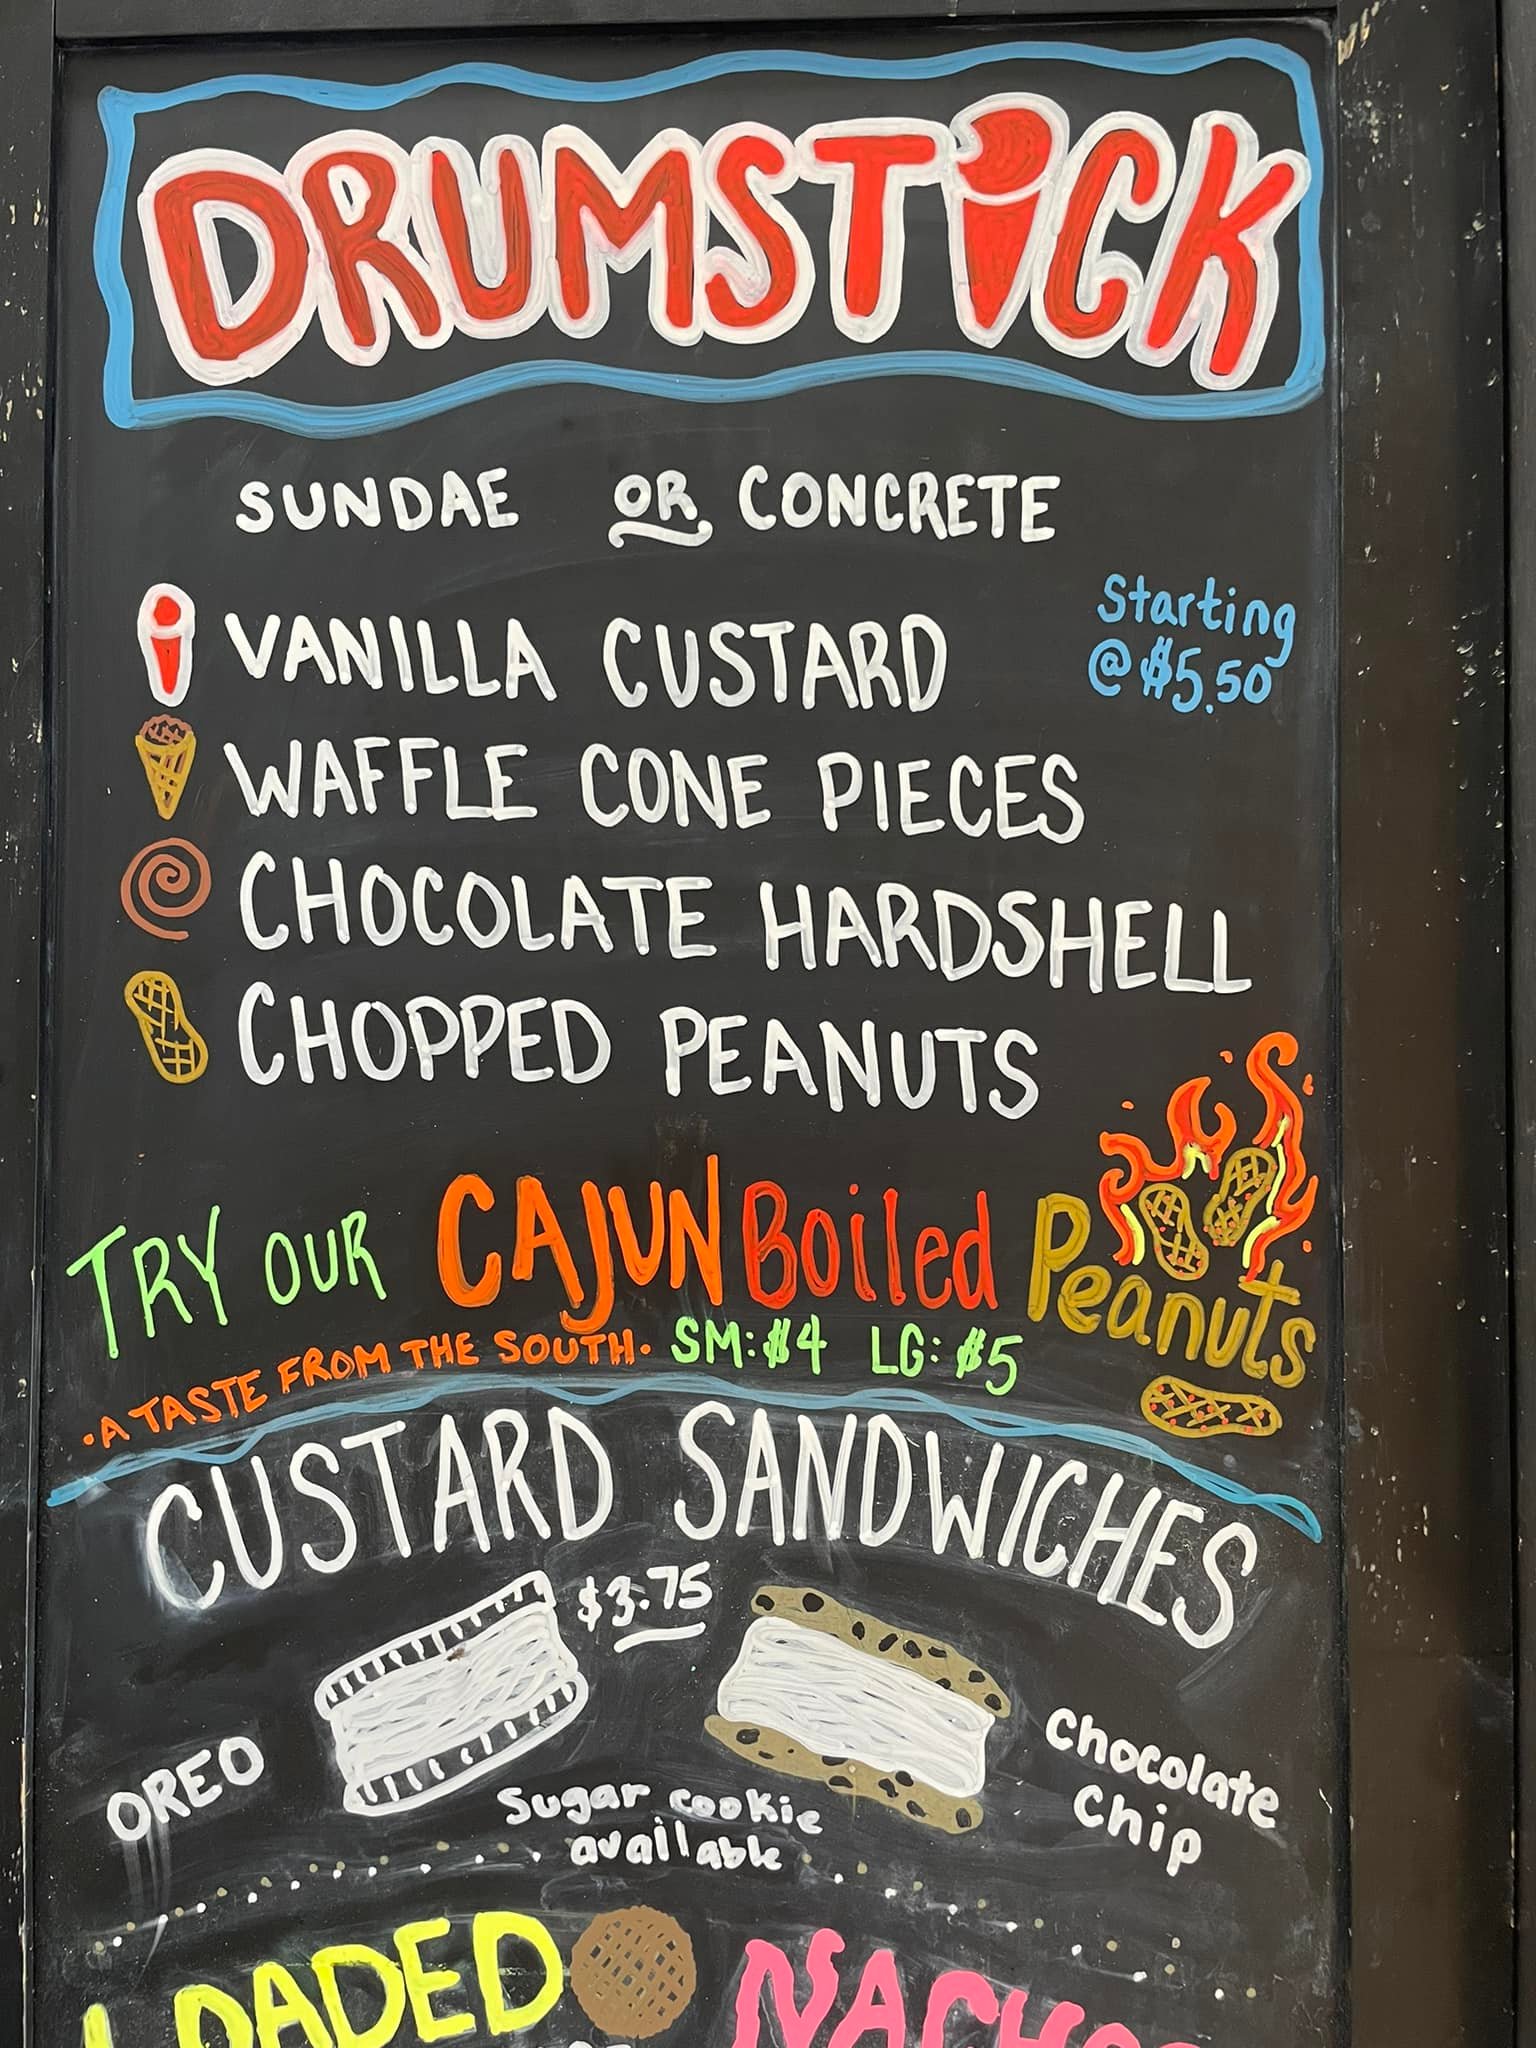 DRUMSTICK
SUNDAE OR CONCRETE
VANILLA CUSTARD
Starting
@ $5.50
WAFFLE CONE PIECES
CHOCOLATE HARDSHELL
CHOPPED PEANUTS
TRY OUR CAJUN Boiled Peanuts
·A TASTE FROM THE SOUTH· SM: $4 LG: $5
CUSTARD SANDWICHES
$3.75
OREO
Chocolate
Chip
Sugar cookie
available
LOADED